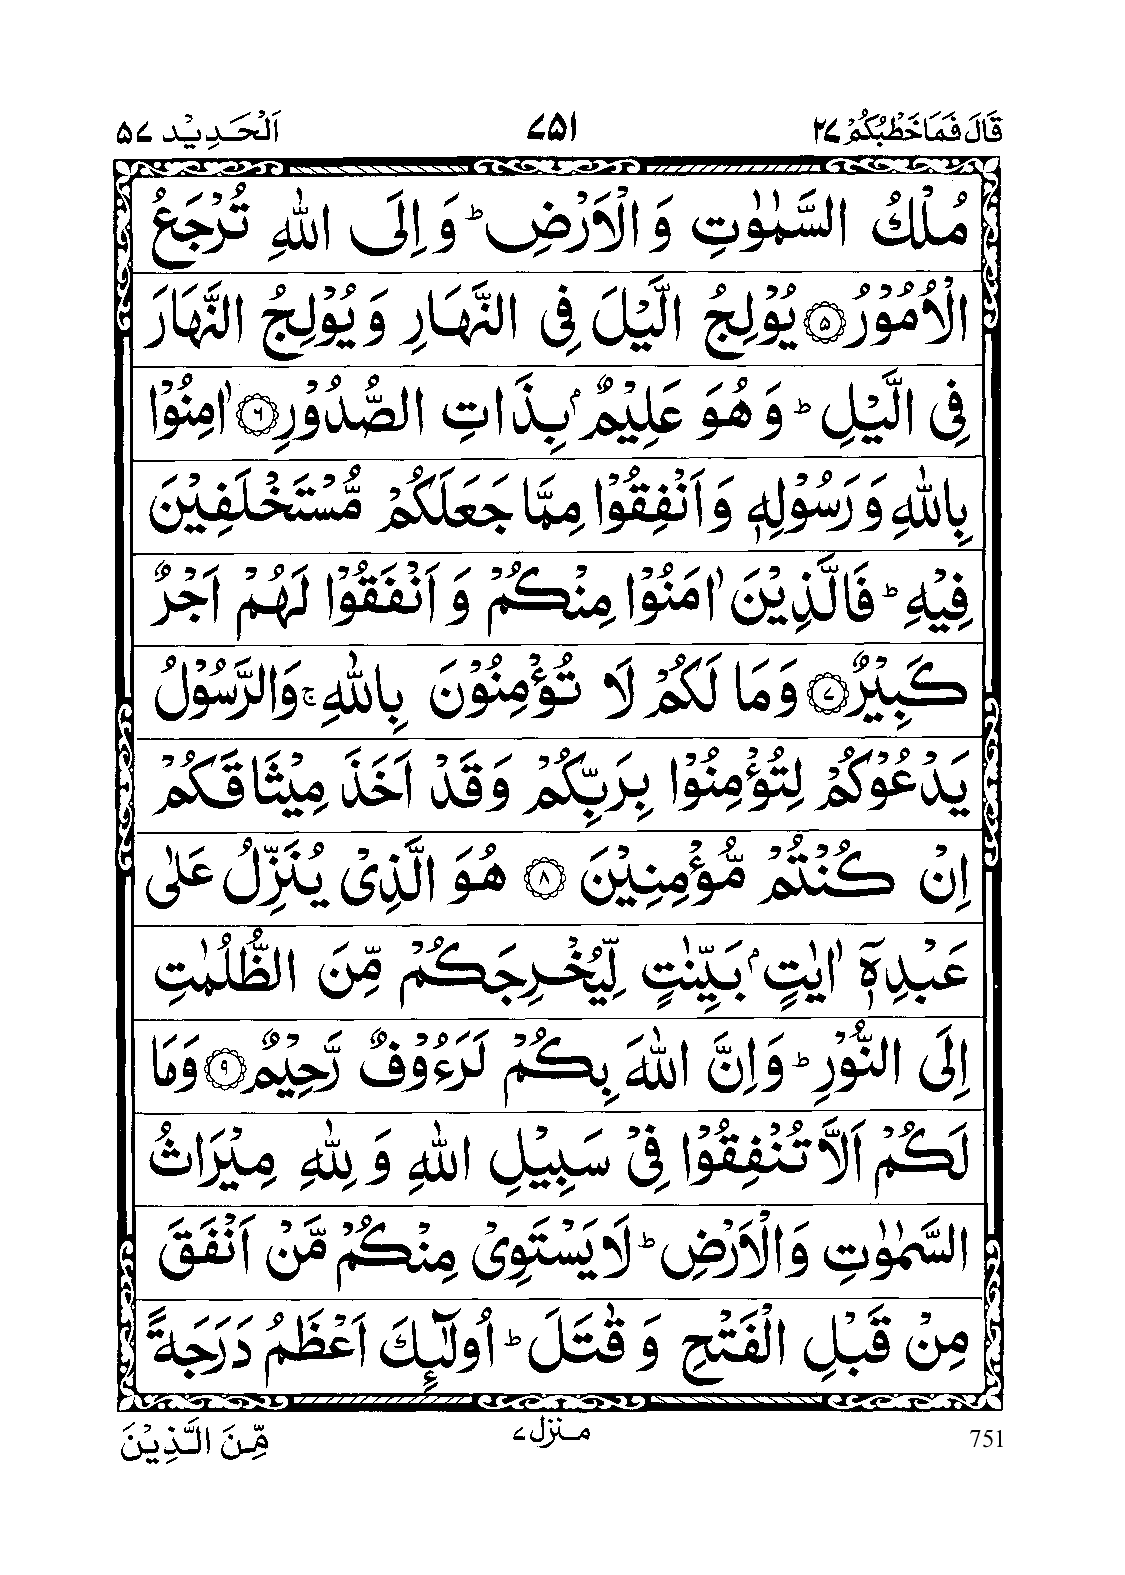 قَالَ فَمَا خَطْبُكُمْ ٢٧ ٧٥١ اَلْحَدِيْد ٥٧
مُلْكُ السَّمٰوٰتِ وَ الْاَرْضِ ؕ وَ اِلَى اللّٰهِ تُرْجَعُ
الْاُمُوْرُ ﴿٥﴾ يُوْلِجُ الَّيْلَ فِى النَّهَارِ وَ يُوْلِجُ النَّهَارَ
فِى الَّيْلِ ؕ وَ هُوَ عَلِيْمٌۢ بِذَاتِ الصُّدُوْرِ ﴿٦﴾ اٰمِنُوْا
بِاللّٰهِ وَ رَسُوْلِهٖ وَ اَنْفِقُوْا مِمَّا جَعَلَكُمْ مُّسْتَخْلَفِيْنَ
فِيْهِ ؕ فَالَّذِيْنَ اٰمَنُوْا مِنْكُمْ وَ اَنْفَقُوْا لَهُمْ اَجْرٌ
كَبِيْرٌ ﴿٧﴾ وَ مَا لَكُمْ لَا تُؤْمِنُوْنَ بِاللّٰهِ ۚ وَالرَّسُوْلُ
يَدْعُوْكُمْ لِتُؤْمِنُوْا بِرَبِّكُمْ وَ قَدْ اَخَذَ مِيْثَاقَكُمْ
اِنْ كُنْتُمْ مُّؤْمِنِيْنَ ﴿٨﴾ هُوَ الَّذِىْ يُنَزِّلُ عَلٰى
عَبْدِهٖۤ اٰيٰتٍۭ بَيِّنٰتٍ لِّيُخْرِجَكُمْ مِّنَ الظُّلُمٰتِ
اِلَى النُّوْرِ ؕ وَ اِنَّ اللّٰهَ بِكُمْ لَرَءُوْفٌ رَّحِيْمٌ ﴿٩﴾ وَ مَا
لَكُمْ اَلَّا تُنْفِقُوْا فِىْ سَبِيْلِ اللّٰهِ وَ لِلّٰهِ مِيْرَاثُ
السَّمٰوٰتِ وَالْاَرْضِ ؕ لَا يَسْتَوِىْ مِنْكُمْ مَّنْ اَنْفَقَ
مِنْ قَبْلِ الْفَتْحِ وَ قٰتَلَ ؕ اُولٰٓئِكَ اَعْظَمُ دَرَجَةً
مِّنَ الَّذِيْنَ منزل ٧ 751